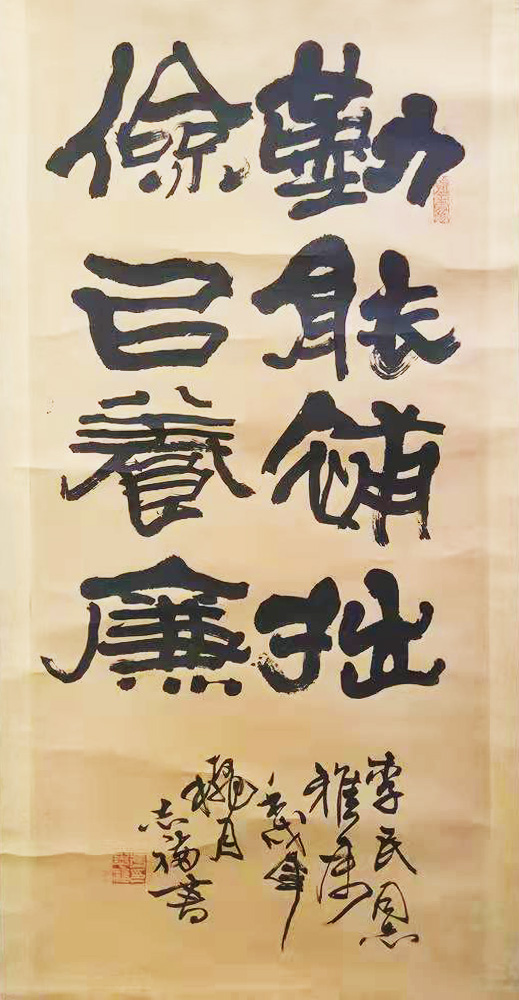 勤能補拙
儉以養廉
李民同志
雅属
戌年
月
志福書